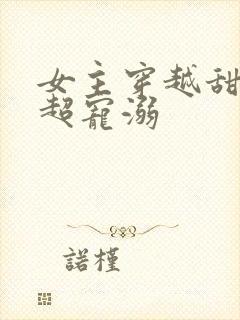 女主穿越甜
超宠溺
諾槿